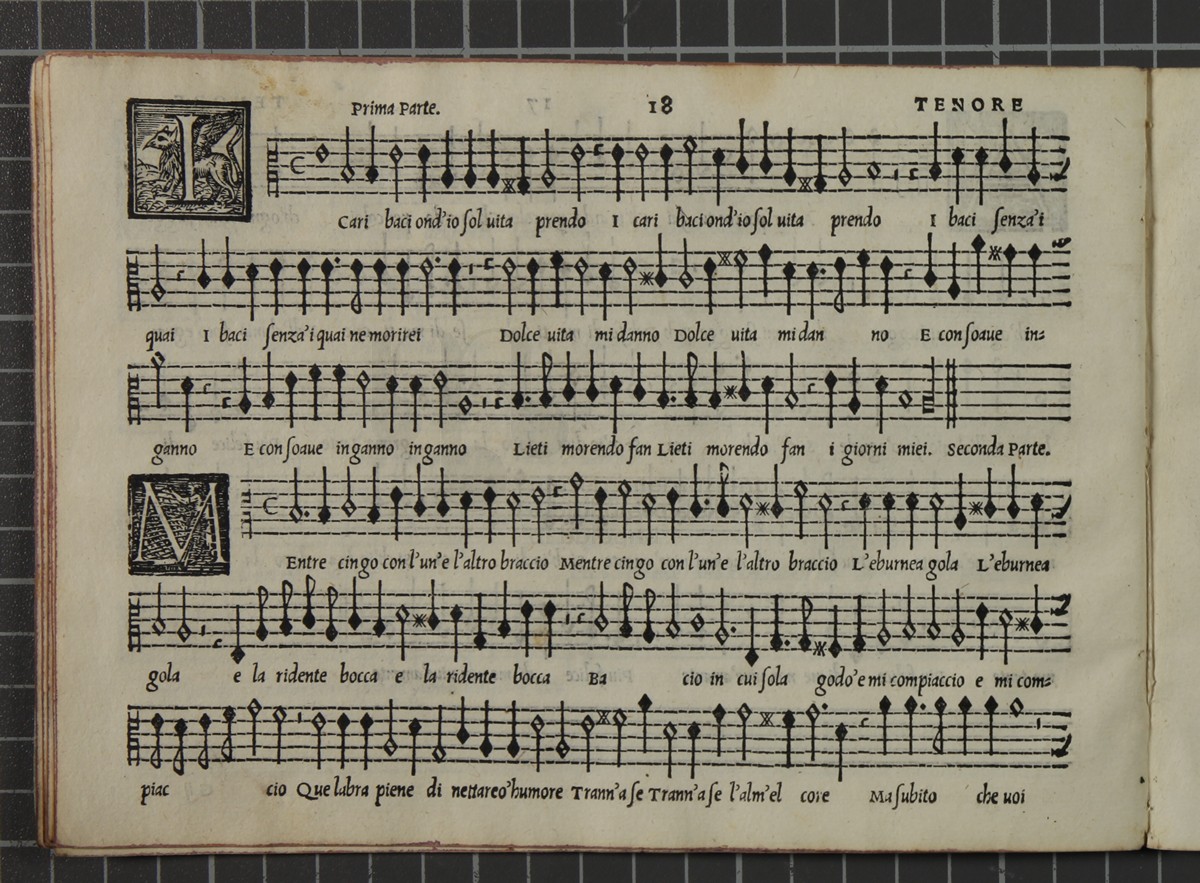 Prima Parte. 18 TENORE
I Cari baci ond'io sol uita prendo I cari baci ond'io sol uita prendo I baci senza'i
quai I baci senza'i quai ne morirei Dolce uita mi danno Dolce uita mi dan no E con soaue in-
ganno E con soaue inganno inganno Lieti morendo fan Lieti morendo fan i giorni miei. Seconda Parte.
M Entre cingo con l'un'e l'altro braccio Mentre cingo con l'un'e l'altro braccio L'eburnea gola L'eburnea
gola e la ridente bocca e la ridente bocca Ba cio in cui sola godo'e mi compiaccio e mi com-
piac cio Que labra piene di nettareo'humore Trann'a se Trann'a se l'alm'el core Ma subito che uoi